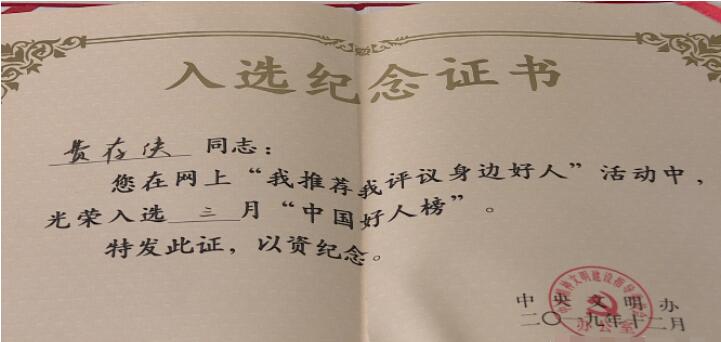 入选纪念证书
费存侠 同志：
您在网上“我推荐我评议身边好人”活动中，
光荣入选 三 月“中国好人榜”。
特发此证，以资纪念。
中央文明办
二〇一九年十二月
办公室